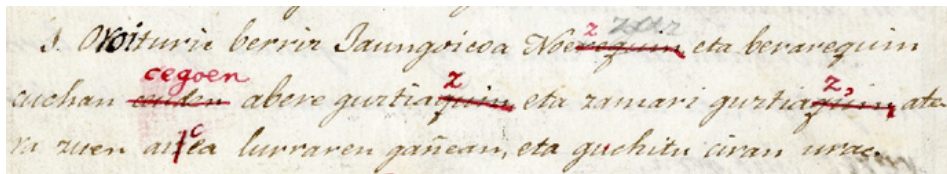 1. Oroituric berriz Jaungoicoa Noerequin z eta berarequin
cuchan ceuden cegoen abere guztiaquin z eta zamari guztiaquin z, ate
ra zuen aicea lurraren gañean, eta guchitu ciran urac.